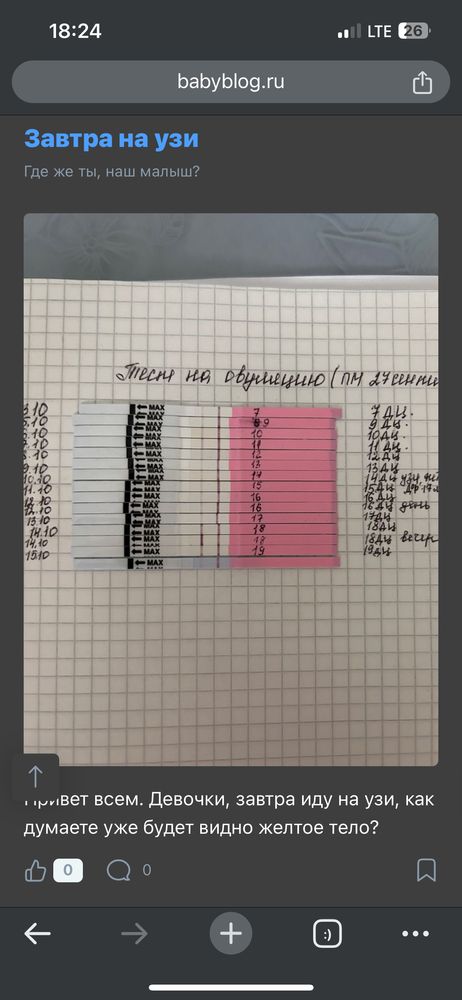 18:24
LTE 26
babyblog.ru
Завтра на узи
Где же ты, наш малыш?
Тест на овуляцию (ПМ 27 сентя
MAX 7 7 ДЦ.
5.10 MAX 9 9 ДЦ.
MAX 10 10 ДЦ.
MAX 11 11 ДЦ.
8.10 MAX 12 12 ДЦ
9.10 MAX 13 13 ДЦ
10.10 MAX 14 14 ДЦ узи
11.10 MAX 15 15 ДЦ
12.10 MAX 16 16 ДЦ
12.10 MAX 16 16 ДЦ день
13.10 MAX 17 17 ДЦ
14.10 MAX 18 18 ДЦ
14.10 MAX 18 18 ДЦ вечер
15.10 MAX 19 19 ДЦ
MAX
Привет всем. Девочки, завтра иду на узи, как
думаете уже будет видно желтое тело?
0 0
:)